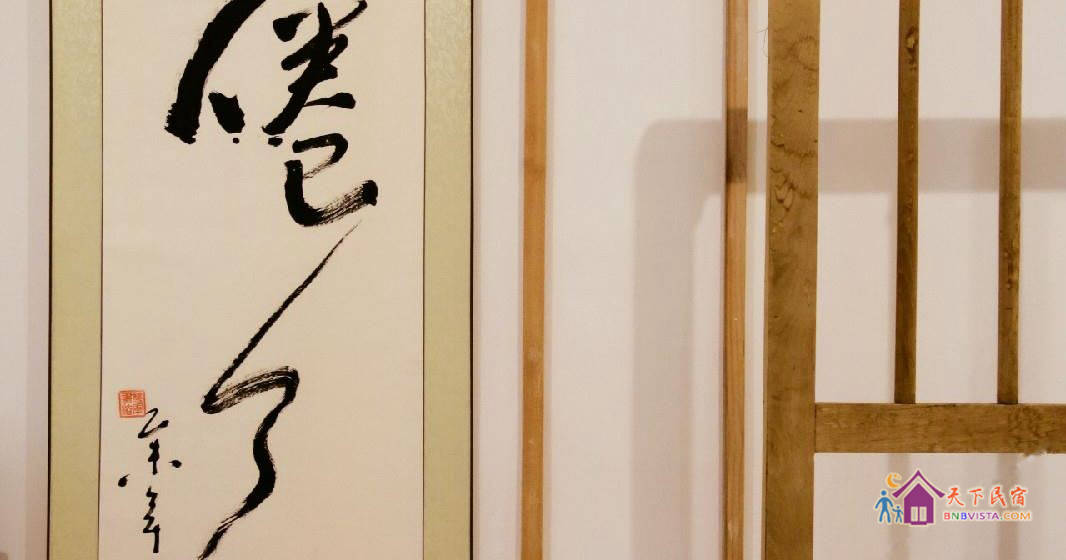 倦了
天下民宿
BNBVISTA.COM